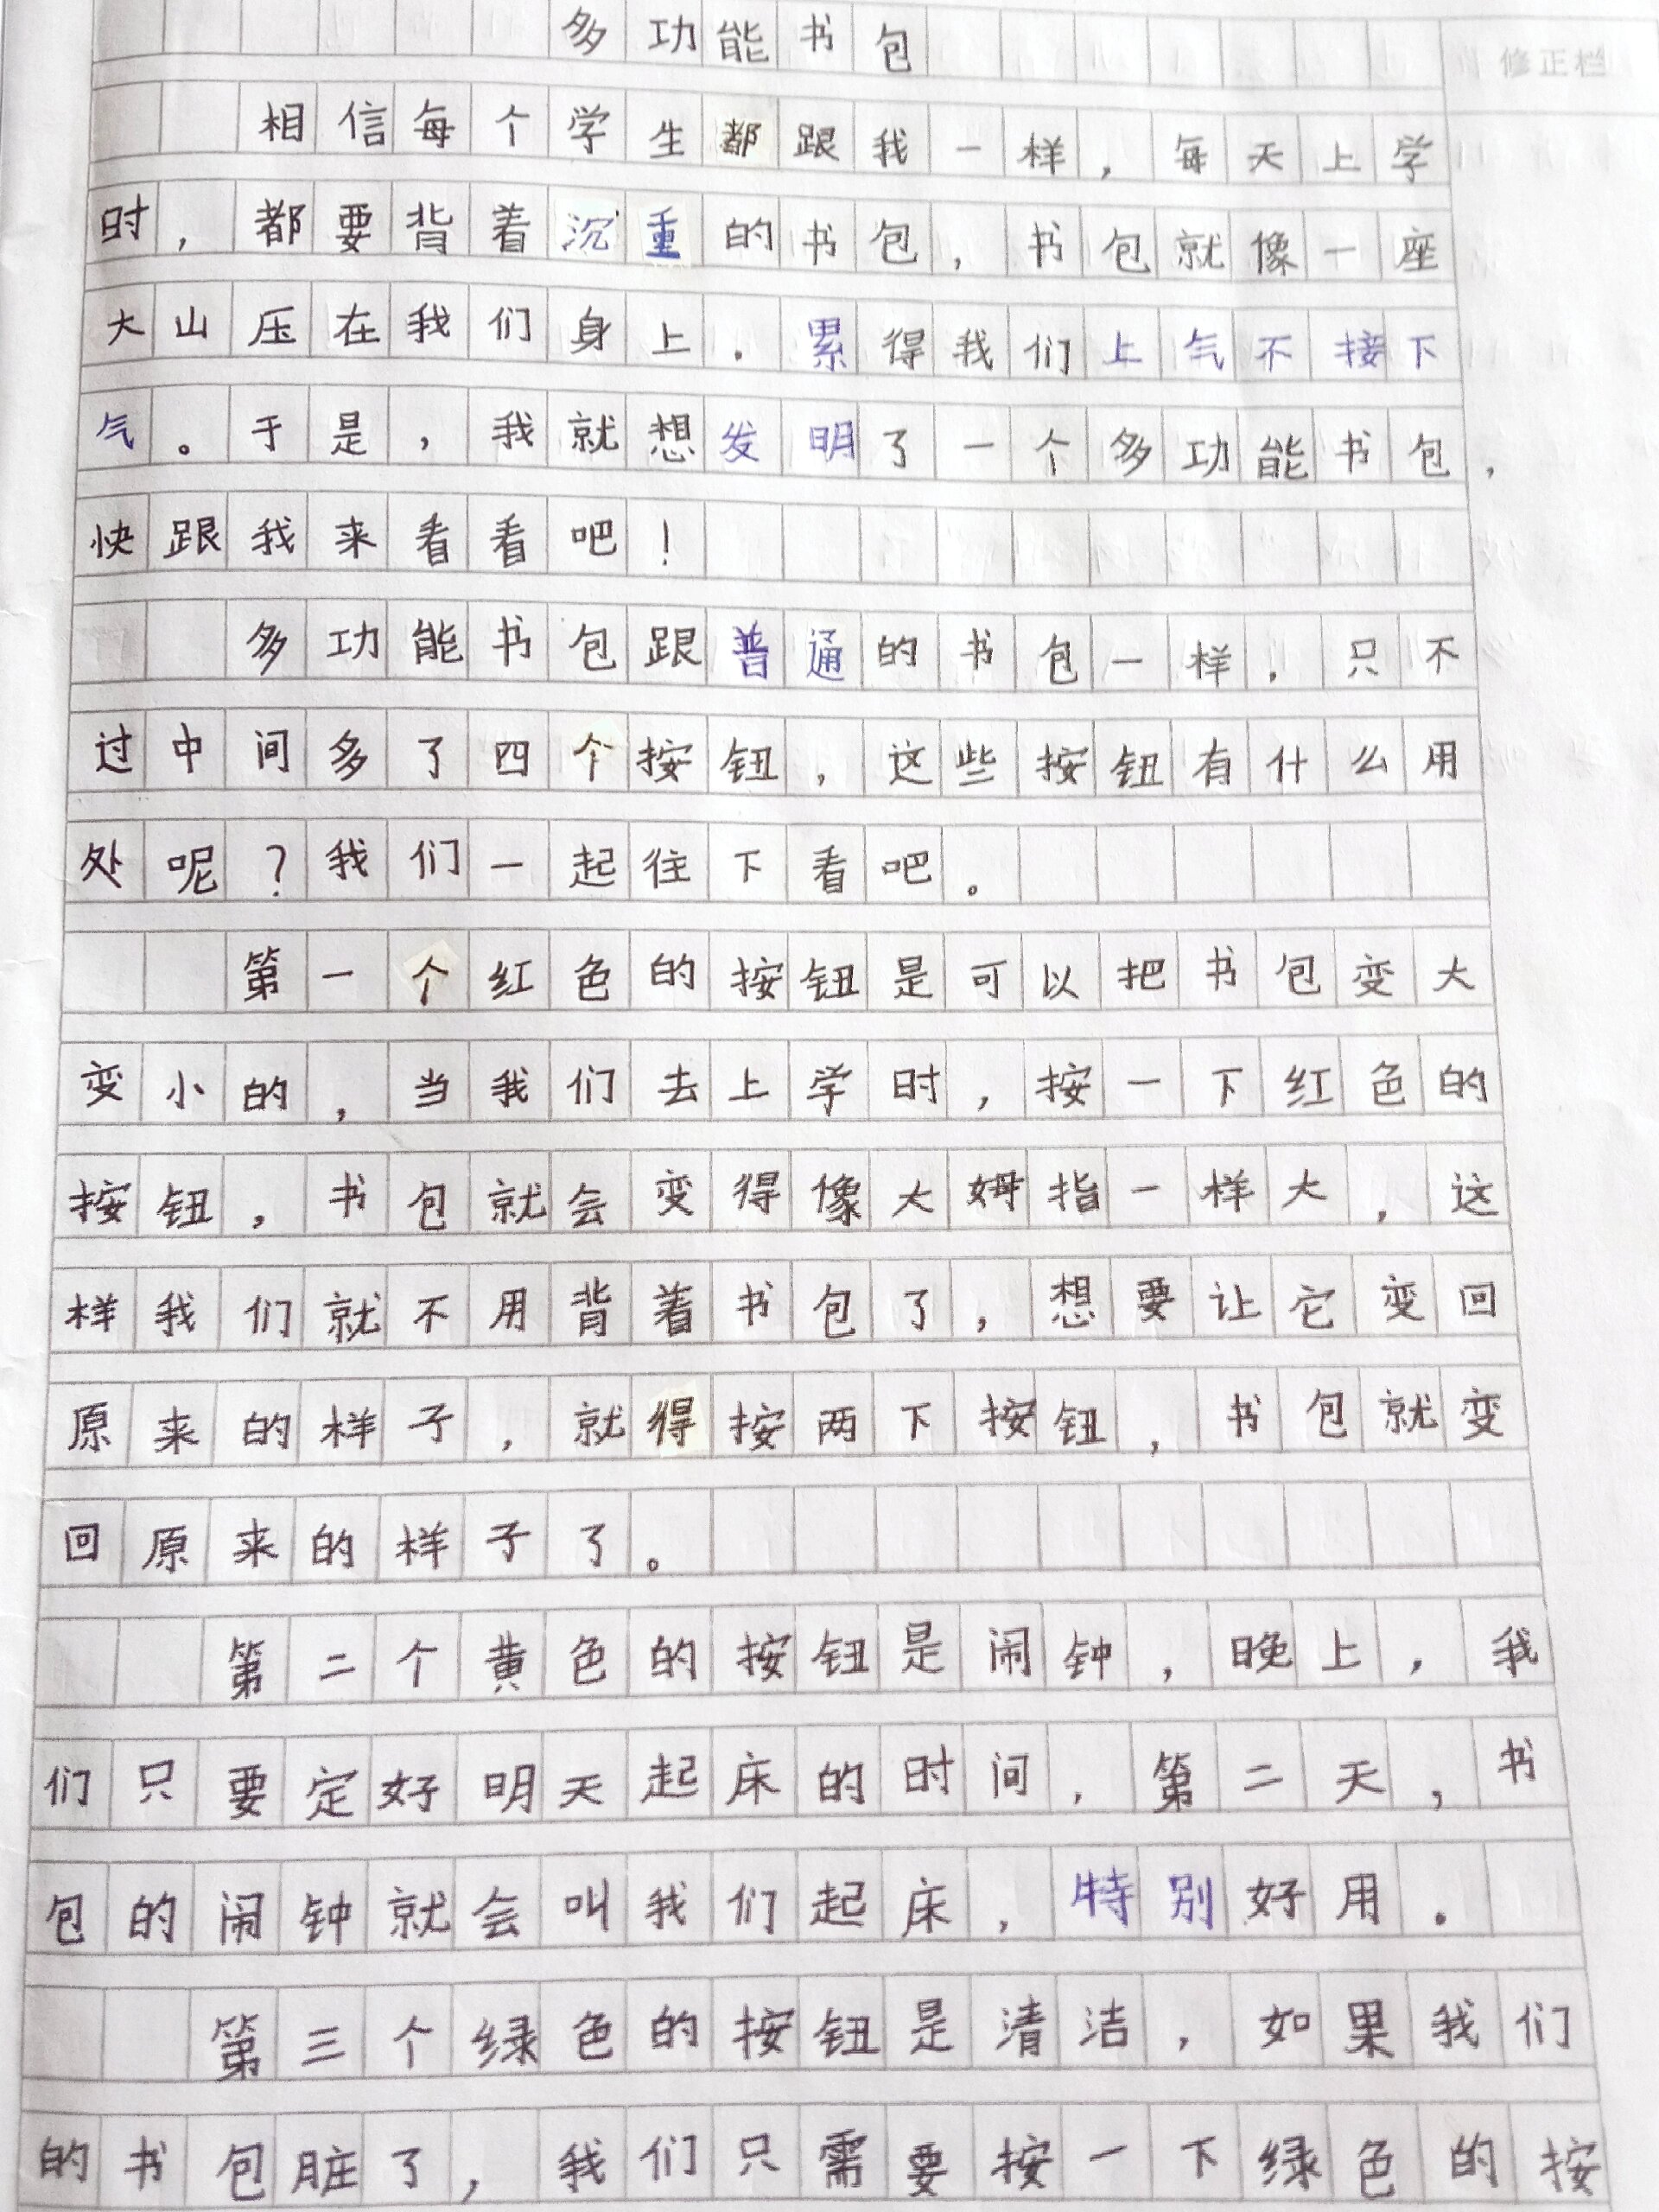 多功能书包
修正栏
相信每个学生都跟我一样，每天上学
时，都要背着沉重的书包，书包就像一座
大山压在我们身上．累得我们上气不接下
气。于是，我就想发明了一个多功能书包，
快跟我来看看吧！
多功能书包跟普通的书包一样，只不
过中间多了四个按钮，这些按钮有什么用
处呢？我们一起往下看吧。
第一个红色的按钮是可以把书包变大
变小的，当我们去上学时，按一下红色的
按钮，书包就会变得像大姆指一样大，这
样我们就不用背着书包了，想要让它变回
原来的样子，就得按两下按钮，书包就变
回原来的样子了。
第二个黄色的按钮是闹钟，晚上，我
们只要定好明天起床的时间，第二天，书
包的闹钟就会叫我们起床，特别好用．
第三个绿色的按钮是清洁，如果我们
的书包脏了，我们只需要按一下绿色的按